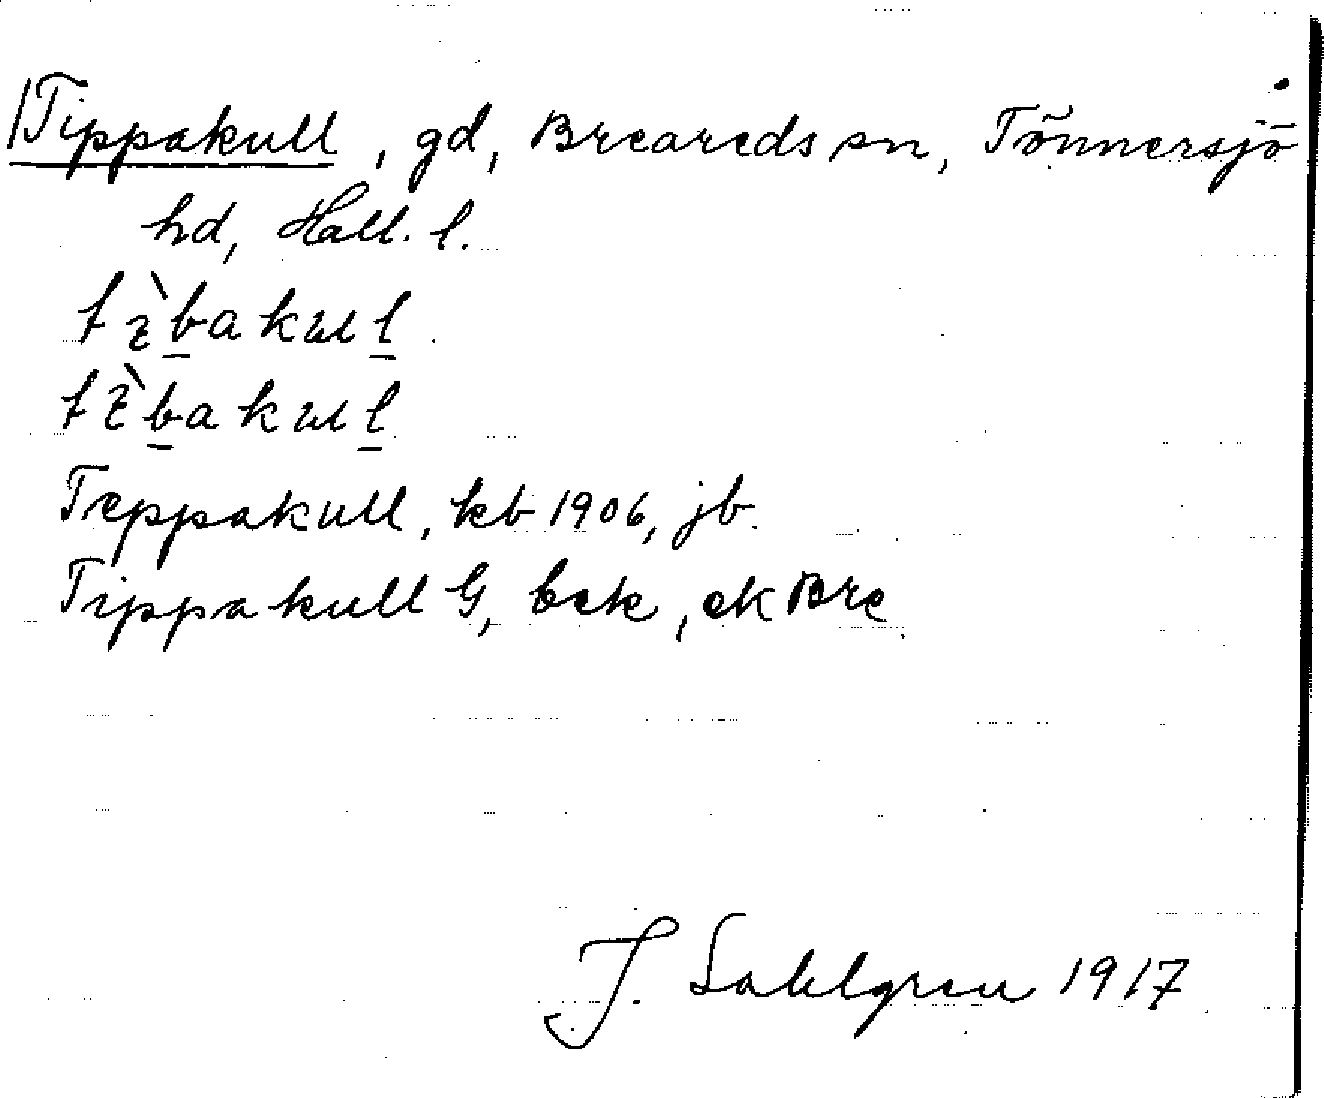 Tippakull, gd, Breareds sn, Tönnersjö
hd, Hall. l.
Teppakull, kb 1906, jb.
Tippakull G, bek, ek Bre
J. Sahlgren 1917